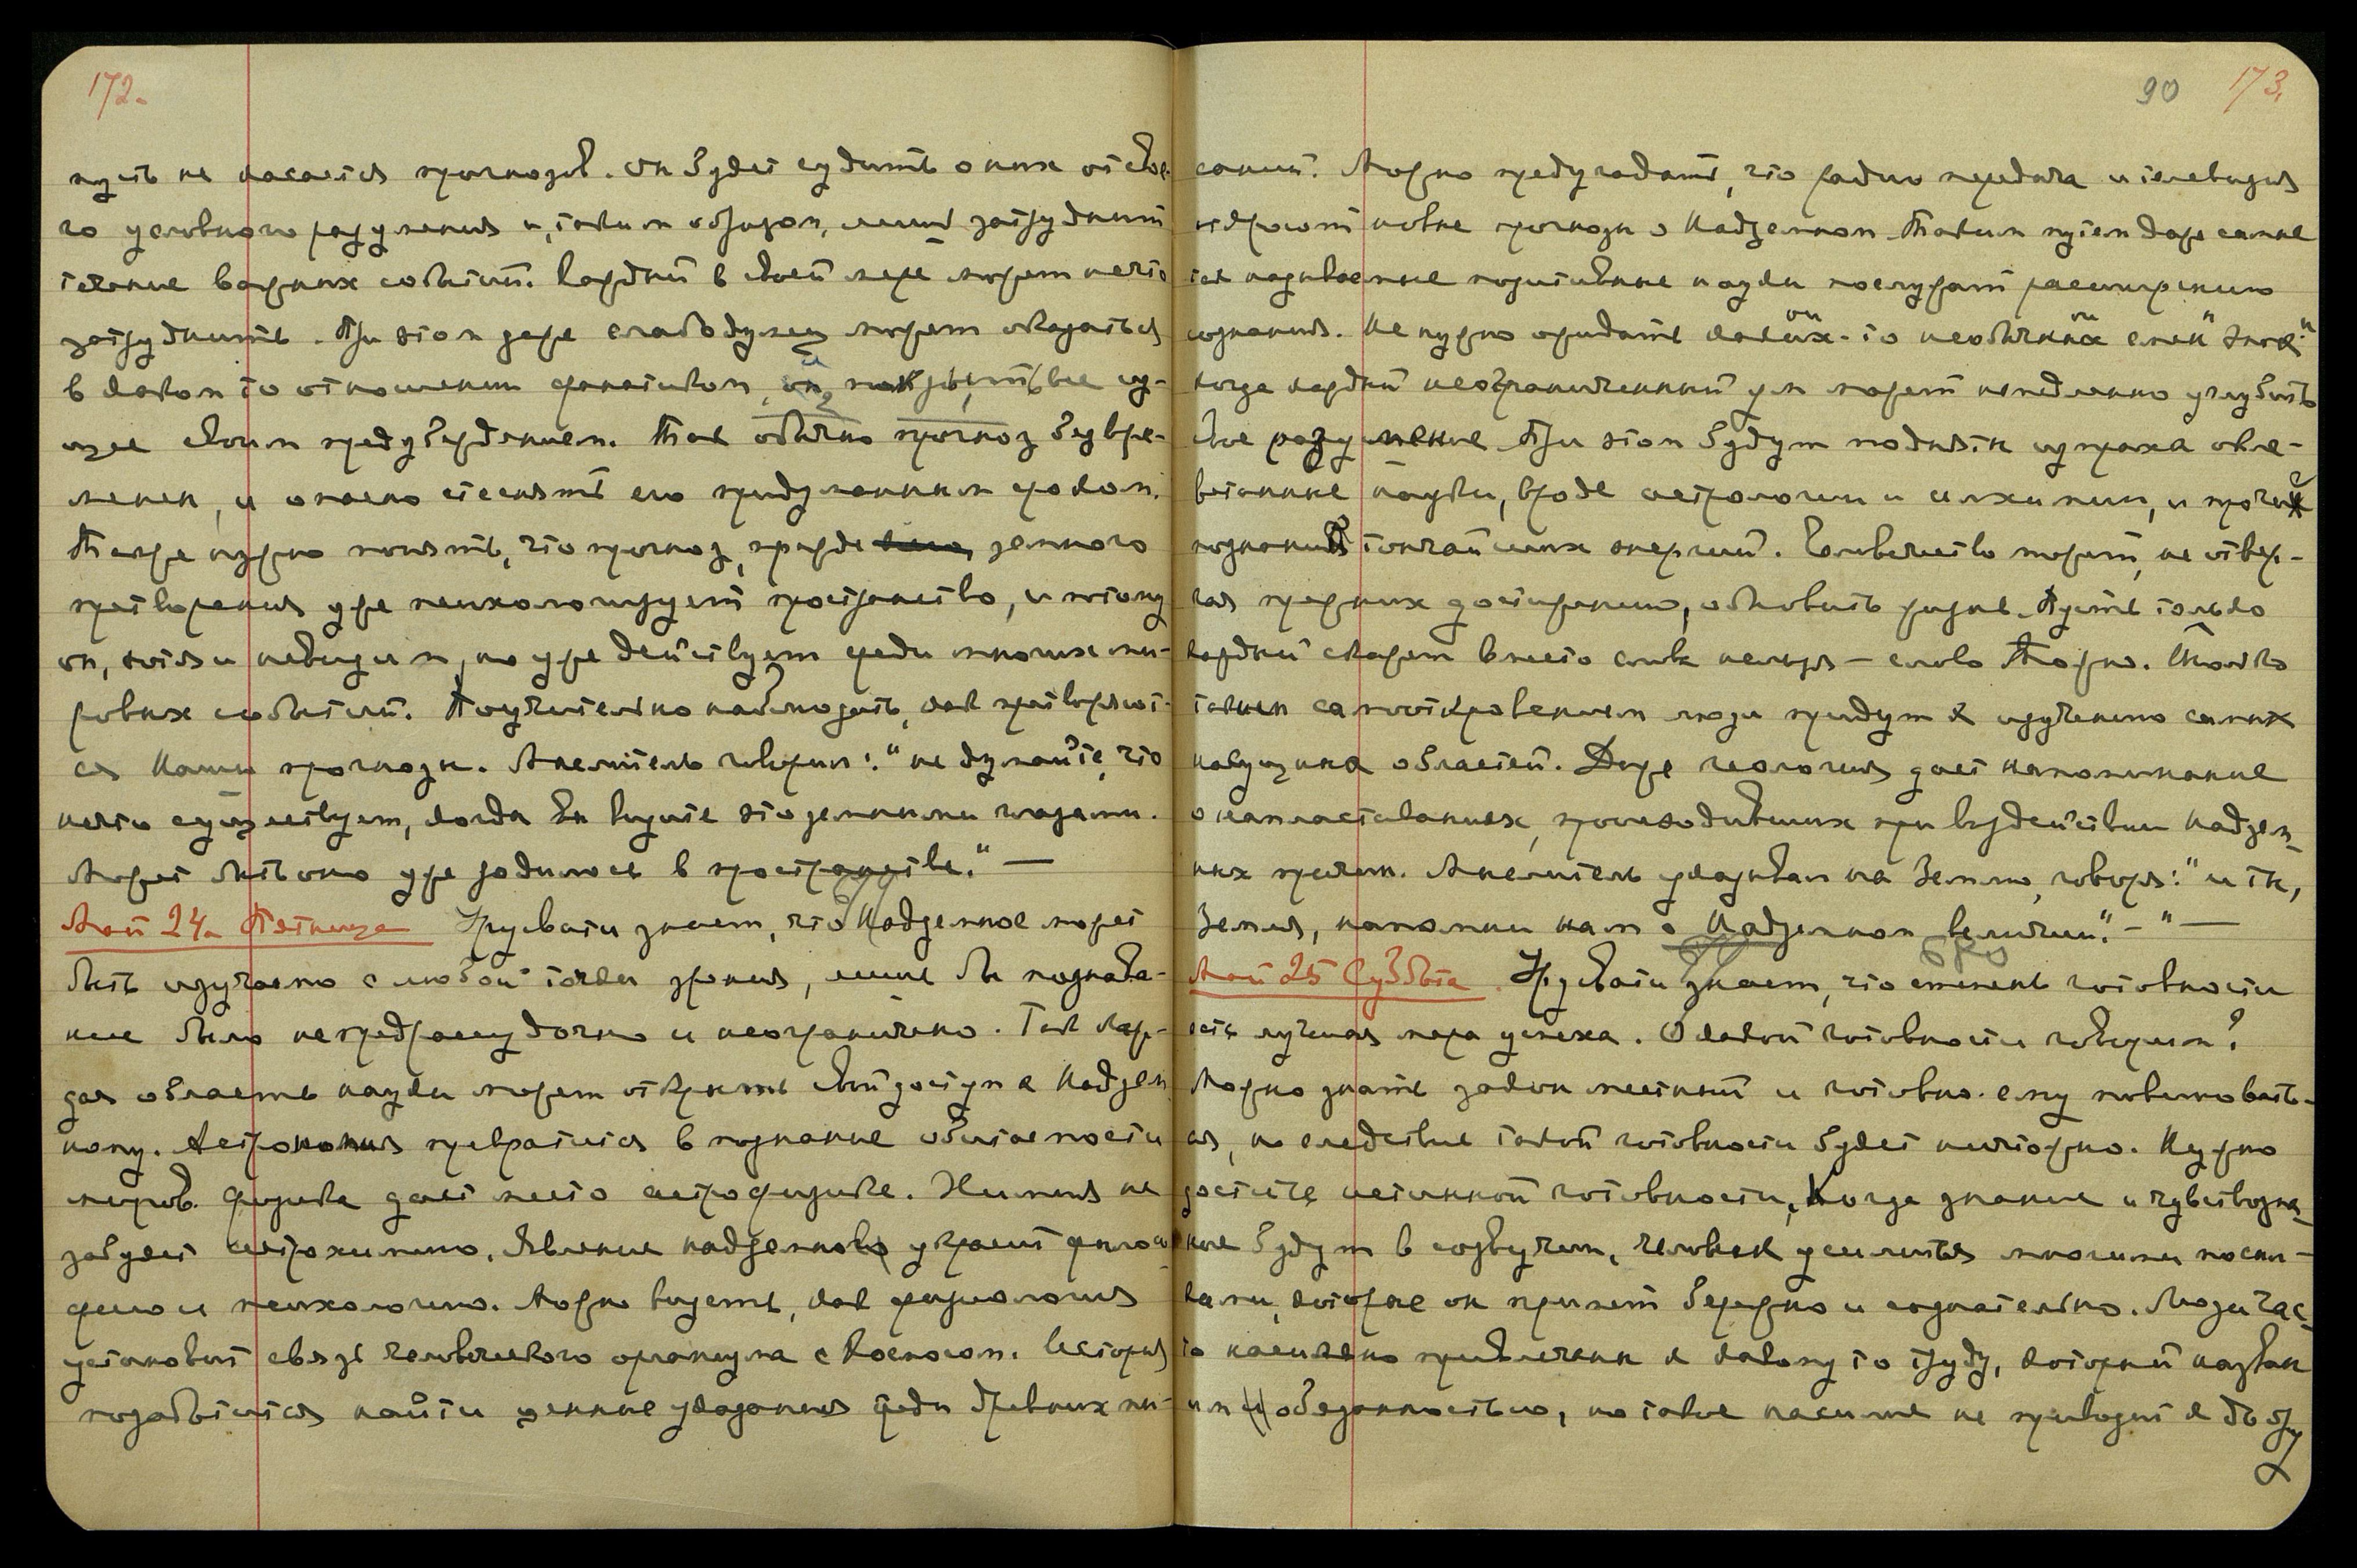 172.
пусть не касается прогнозов. Он будет судить о них от свое-
го условного разумения и, таким образом, лишь затруднит
течение важных событий. Каждый в своей мере может нечто
затруднить. При этом даже слабодумец может оказаться
в каком то отношении фанатиком, и он покроет все су-
щее своим предубеждением. Так обычно прогноз безвре-
менен, и опасно стеснять его придуманным сроком.
Также нужно понять, что прогноз, прежде земного
претворения уже психологизует пространство, и потому
он, хотя и невидим, но уже действует среди многих ми-
ровых событий. Поучительно наблюдать, как претворяют-
ся Наши прогнозы. Мыслитель говорил: "не думайте, что
нечто существует, когда вы видите это земными глазами.
Может быть оно уже родилось в пространстве." —
Май 24. Пятница Урусвати знает, что Надземное может
быть изучаемо с любой точки зрения, лишь бы познава-
ние было непредрассудочно и неограничено. Так каж-
дая область науки может открыть свой доступ к Надзем
ному. Астрономия превратится в познание обитаемости
миров. Физика даст место астрофизике. Химия не
забудет астрохимию. Явление надземного украсит филосо-
фию и психологию. Можно видеть, как физиология
установит связь человеческого организма с Космосом. История
позаботится найти ценные указания среди древних пи-
90 173.
саний. Можно предугадать, что радио передача и телевизия
откроют новые прогнозы о Надземном. Таким путем даже самые
так называемые позитивные науки послужат расширению
сознания. Не нужно ожидать каких-то необычных смен "эпох"
когда каждый неограниченный ум может немедленно углубить
свое разумение. При этом будут подняты из праха окле-
ветанные науки, вроде астрологии и алхимии, и прочих
познаний тончайших энергий. Человечество может, не отвер-
гая прежних достижений, обновить жизнь. Пусть только
каждый скажет вместо слова нельзя — слово Можно. Только
таким самооткровением люди придут к изучению самых
насущных областей. Даже геология дает напоминание
о напластованиях, происходивших при воздействии Надзем-
ных причин. Мыслитель указывал на Землю, говоря: "и ты,
Земля, напомни нам о Надземном величии". — " —
Май 25 Суббота. Урусвати знает, что степень готовности
есть лучшая мера успеха. О какой готовности говорим?
Можно знать закон местный и готовно ему повиновать-
ся, но следствие такой готовности будет ничтожно. Нужно
достичь истинной готовности, Когда знание и чувствозна-
ние будут в созвучии, человек усилится многими посыл-
ками, которые он примет бережно и сознательно. Люди час-
то насильно привлечены к какому то труду, который назван
им обязанностью, но такое насилие не приводит к добру